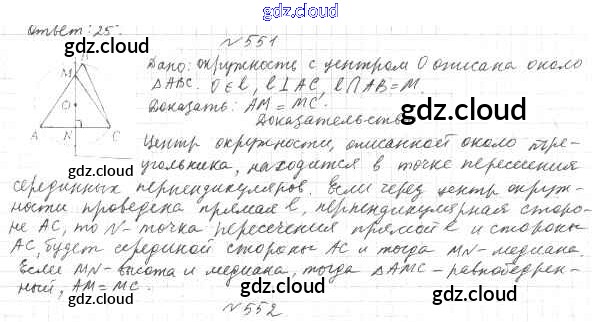 gdz.cloud
ответ: 25.
gdz.cloud
N 551
Дано: окружность с центром O описана около
ΔABC. O∈l, l⊥AC, l∩AB=M.
Доказать: AM=MC.
gdz.cloud
Доказательство
M
O
A N C
Центр окружности, описанной около тре-
угольника, находится в точке пересечения
серединных перпендикуляров. Если через центр окруж-
ности проведена прямая l, перпендикулярная сторо-
не AC, то N- точка пересечения прямой l и стороны
AC, будет серединой стороны AC и тогда MN-медиана.
Если MN-высота и медиана, тогда ΔAMC-равнобедрен-
ный, AM=MC.
gdz.cloud
gdz.cloud
N 552